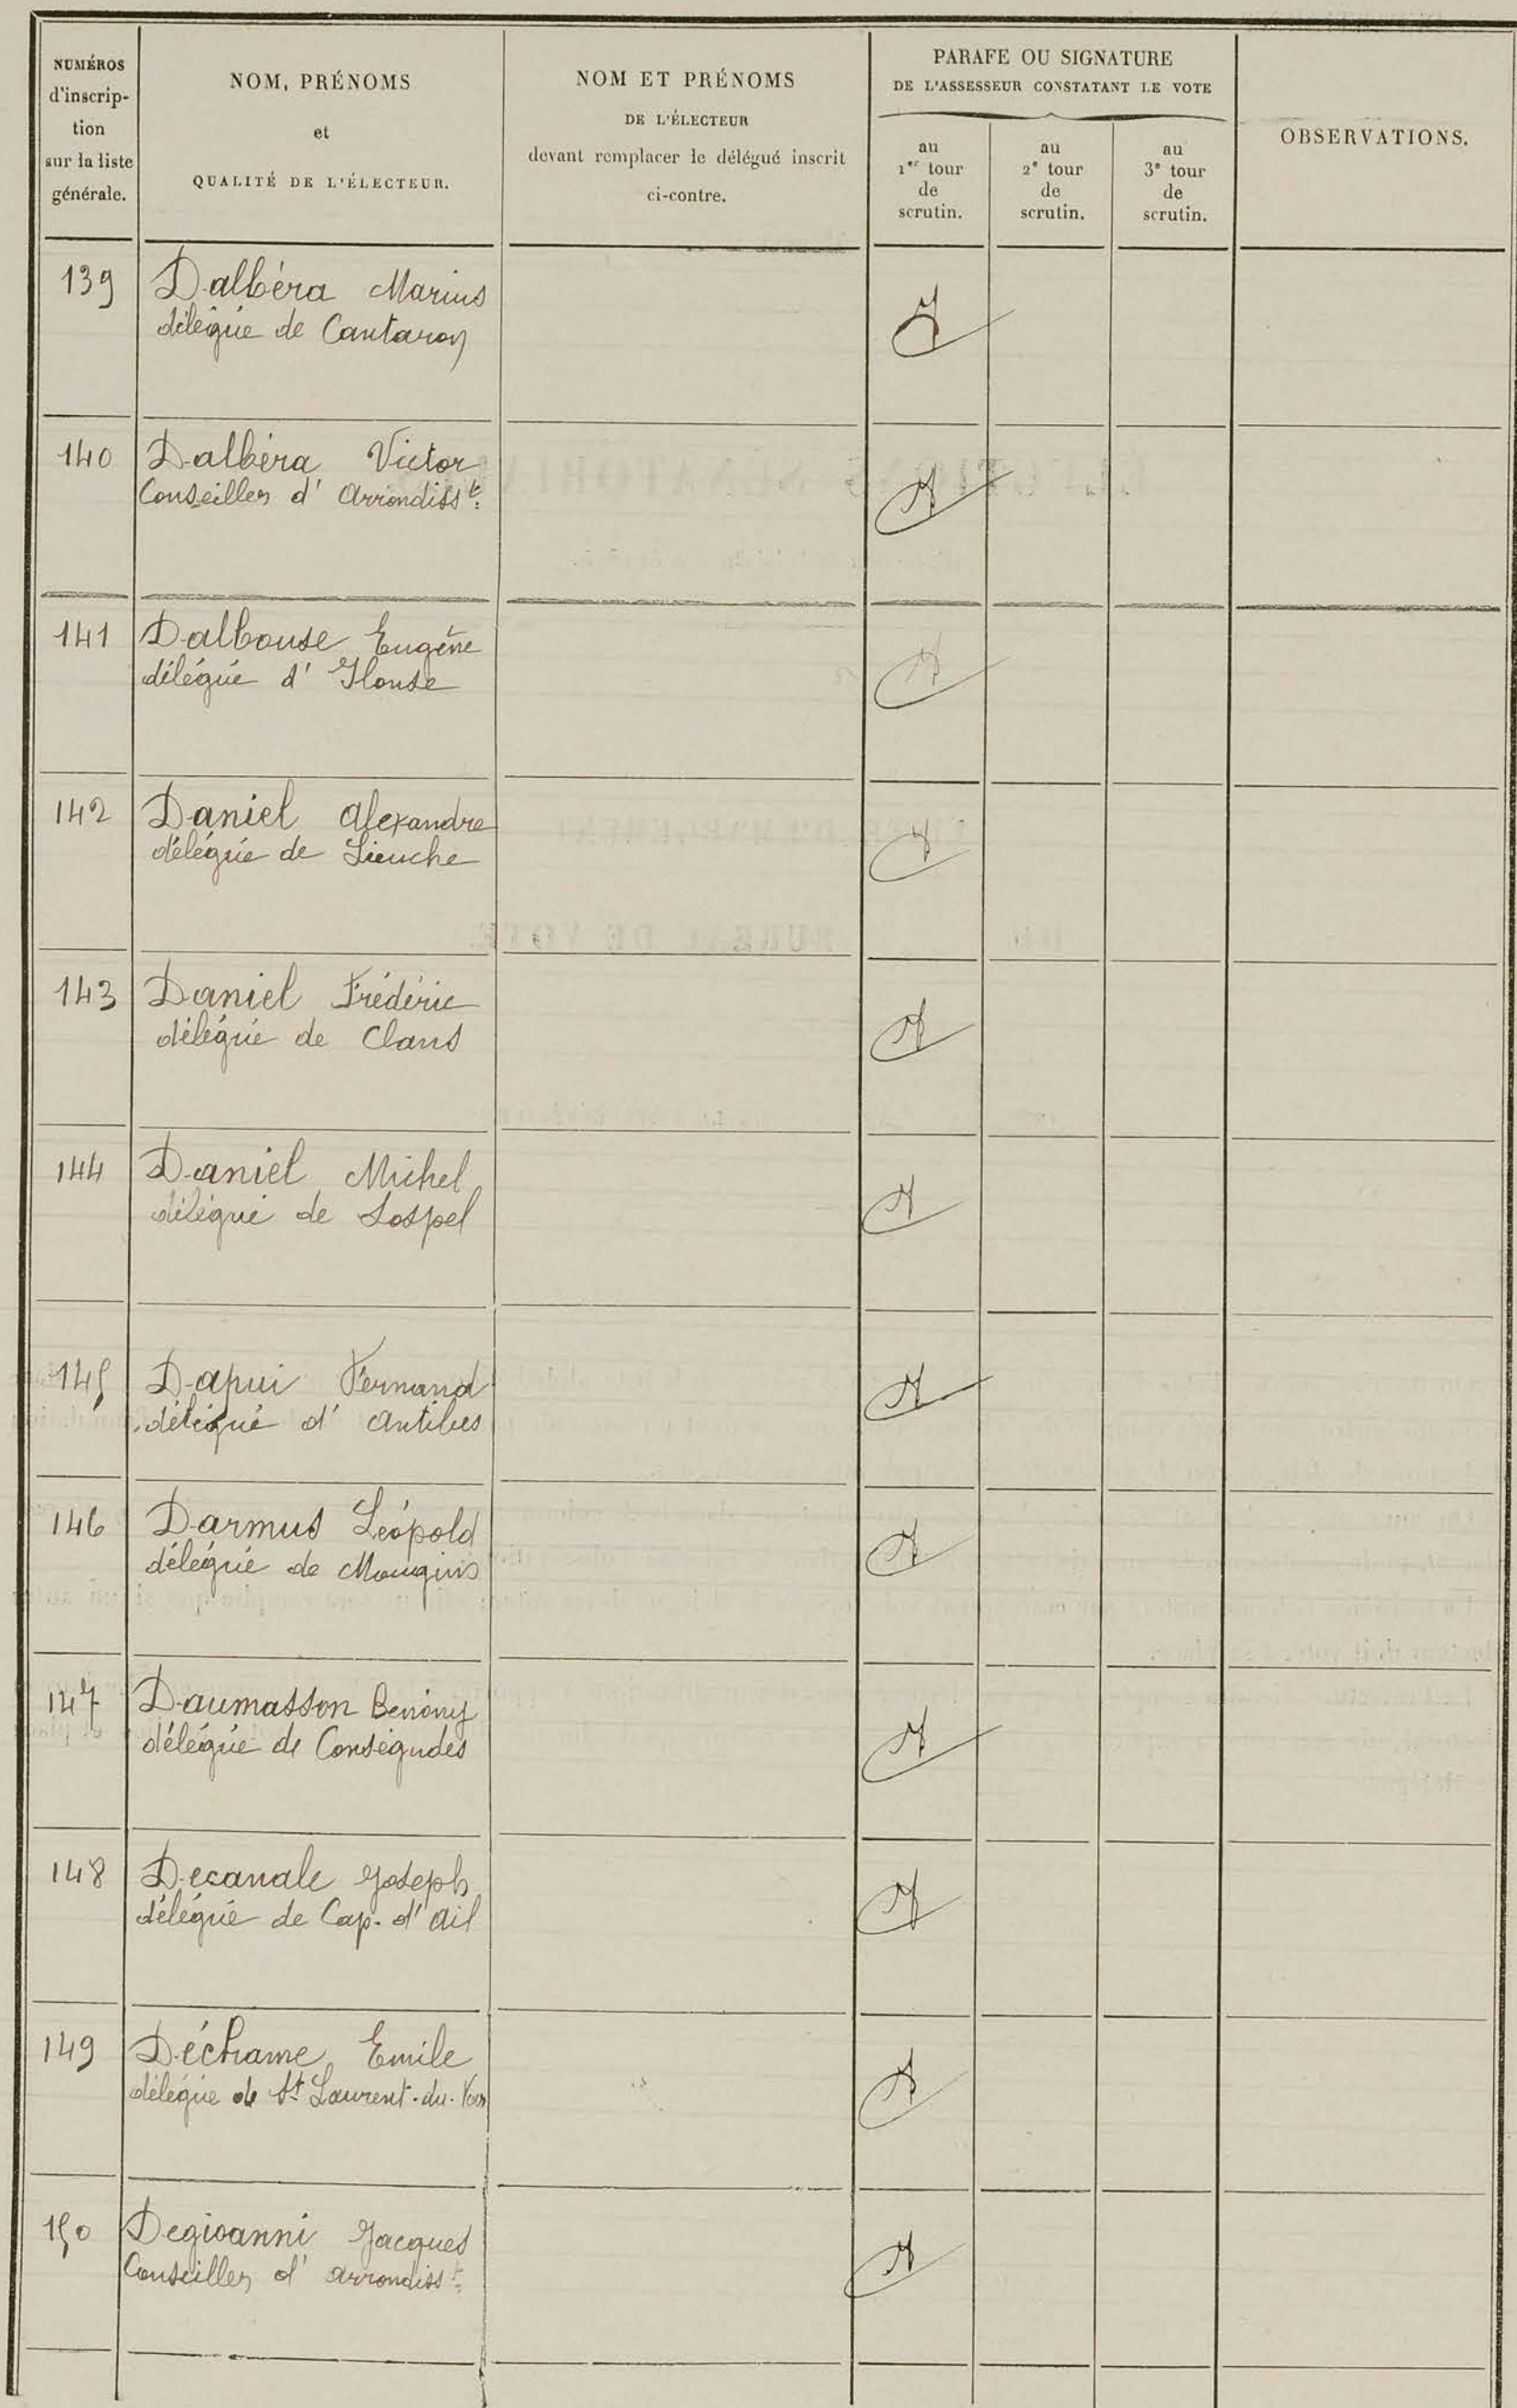 NUMÉROS
d'inscrip-
tion
sur la liste
générale.
NOM, PRÉNOMS
et
QUALITÉ DE L'ÉLECTEUR.
NOM ET PRÉNOMS
DE L'ÉLECTEUR
devant remplacer le délégué inscrit
ci-contre.
PARAFE OU SIGNATURE
DE L'ASSESSEUR CONSTATANT LE VOTE
au
1er tour
de
scrutin.
au
2e tour
de
scrutin.
au
3e tour
de
scrutin.
OBSERVATIONS.
139 Dalbéra Marius
délégué de Cantaron
140 Dalbéra Victor
Conseiller d'Arrondisst
141 Dalbouse Eugène
délégué d'Ilonse
142 Daniel Alexandre
délégué de Lieuche
143 Daniel Frédéric
délégué de Clans
144 Daniel Michel
délégué de Sospel
145 Dapui Fernand
délégué d'Antibes
146 Darmus Léopold
délégué de Mougins
147 Daumasson Benony
délégué de Conségudes
148 Decanale Joseph
délégué de Cap-d'Ail
149 Déchame Emile
délégué de St Laurent-du-Var
150 Degioanni Jacques
Conseiller d'arrondisst